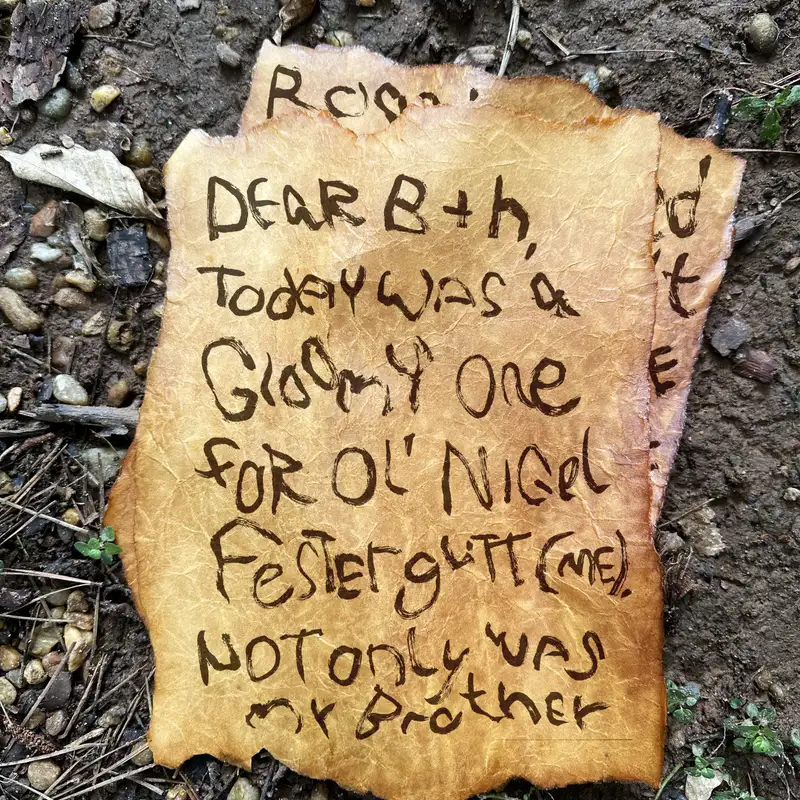 DEAR B+h,
Today was a
Gloomy One
for Ol' NiGel
Festergutt (ME).
Not only was
my Brother